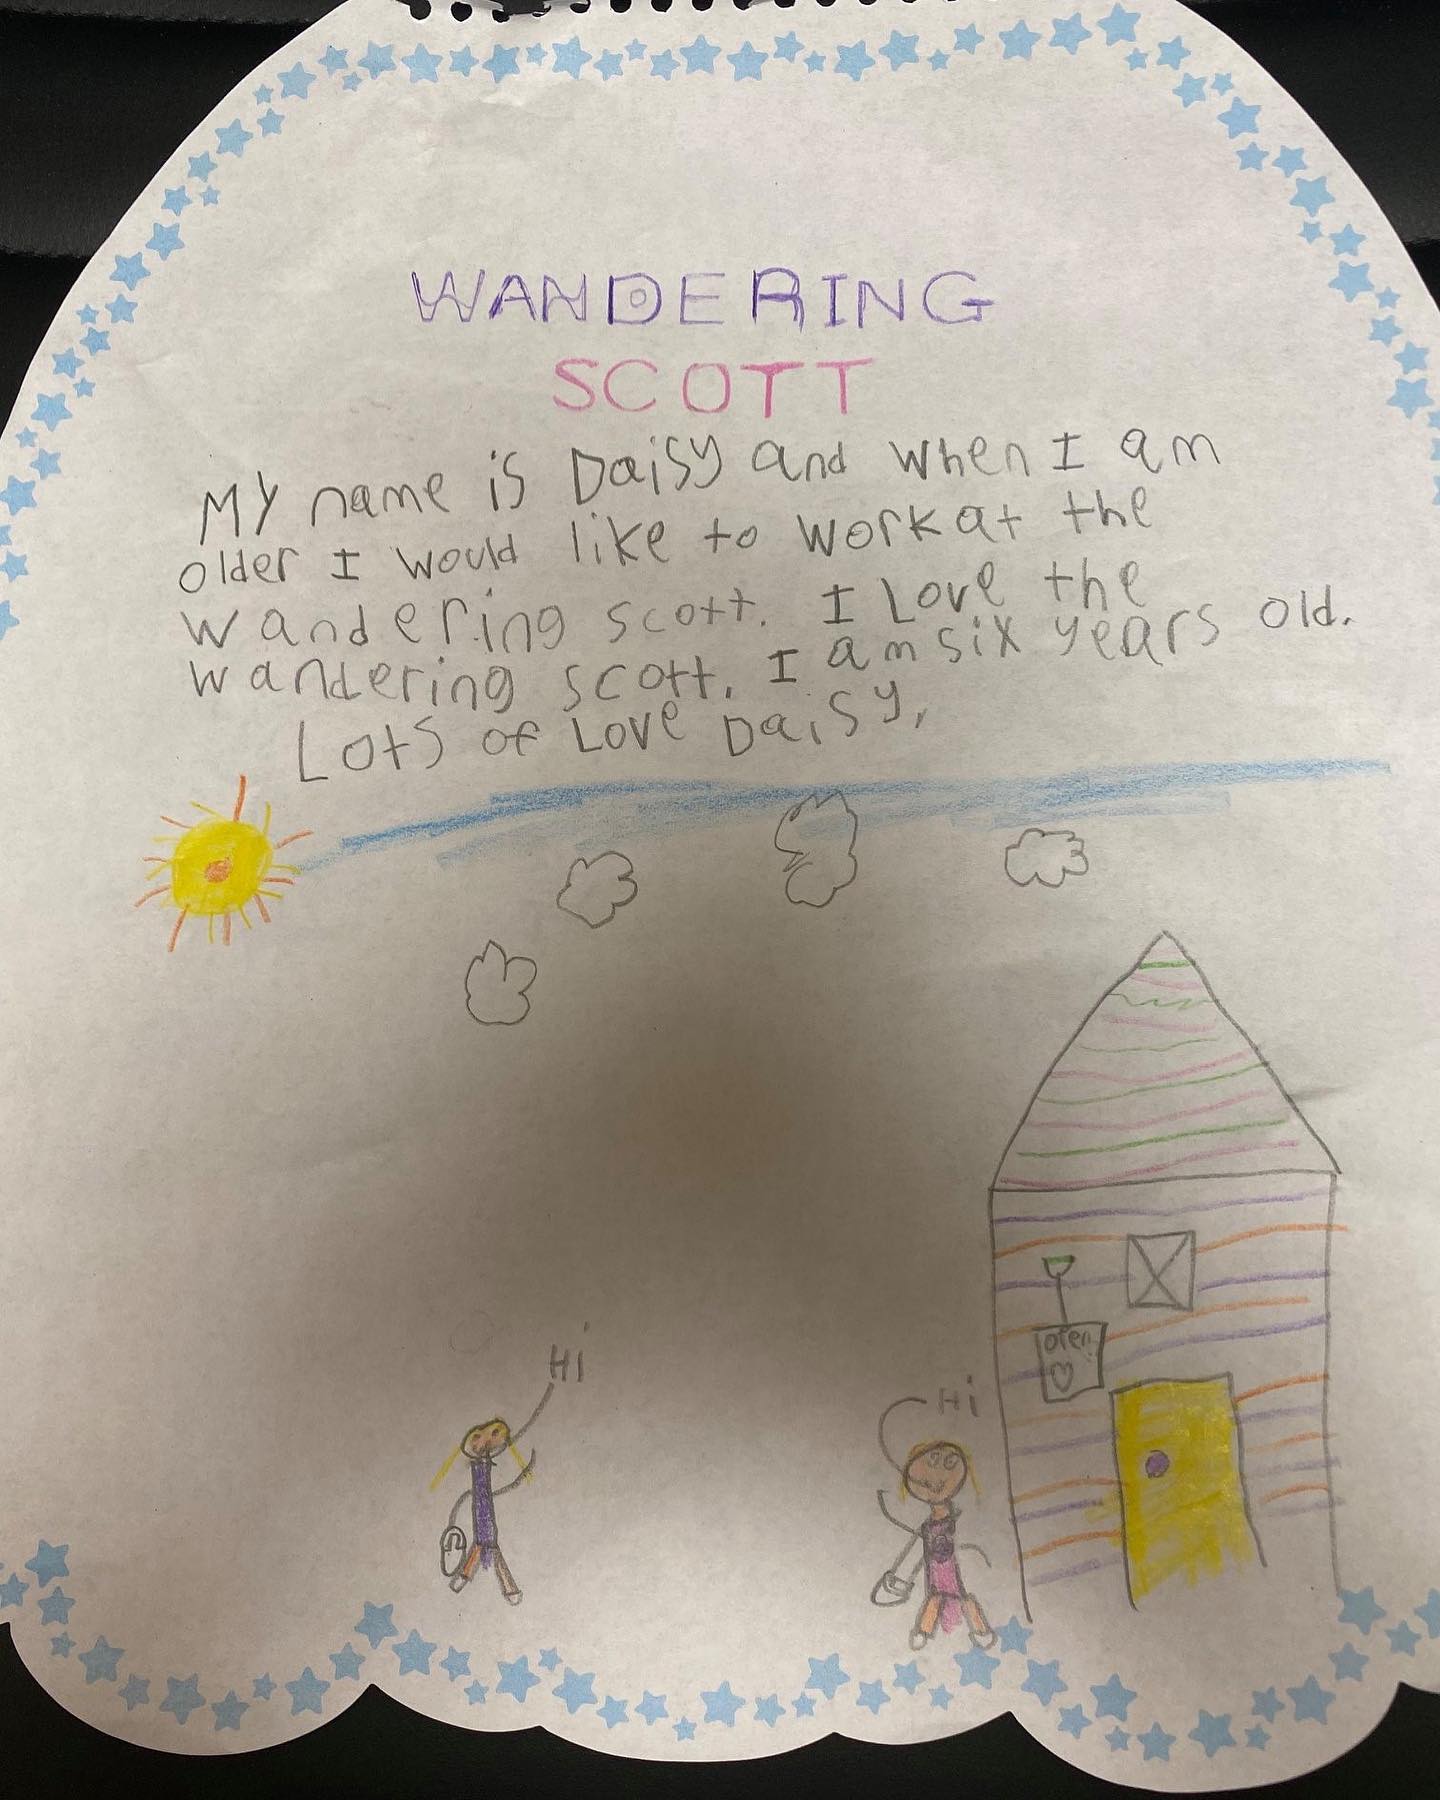 WANDERING
SCOTT
My name is Daisy and when I am
older I would like to work at the
wandering scott. I Love the
wandering scott. I am six years old.
Lots of Love Daisy,
Hi
Hi
open